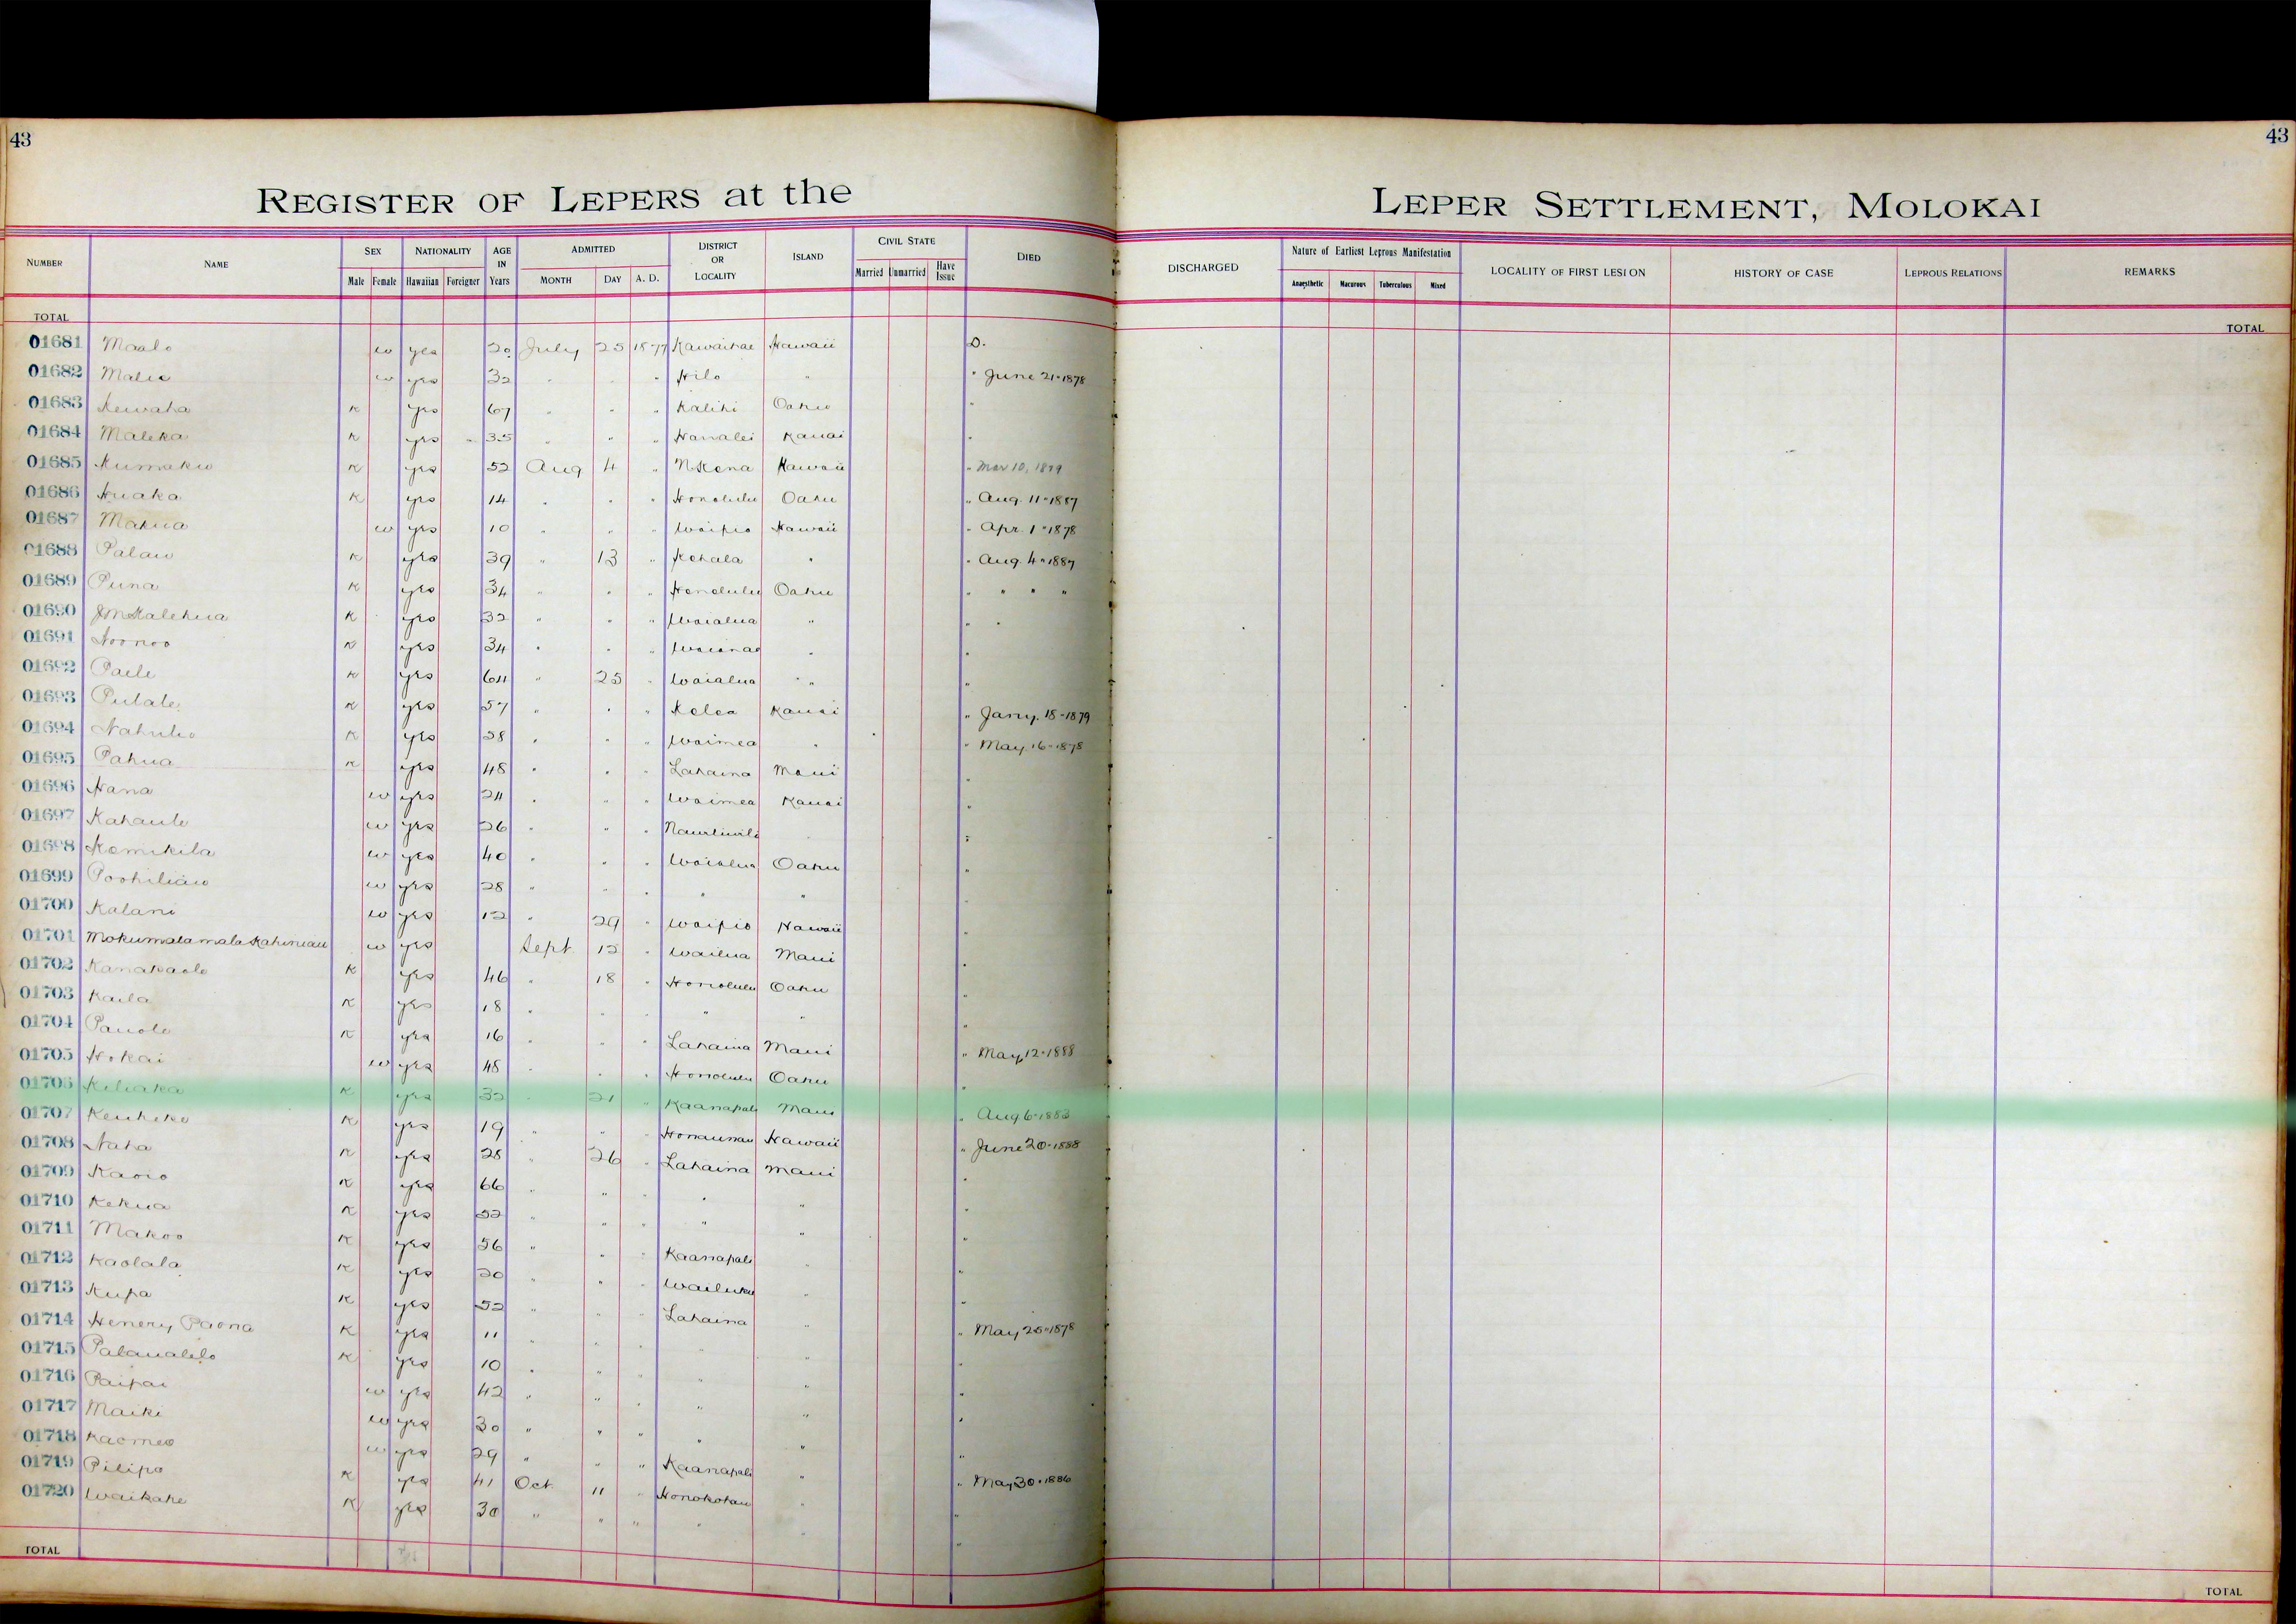 43 43
REGISTER OF LEPERS at the LEPER SETTLEMENT, MOLOKAI
NUMBER NAME SEX Male Female NATIONALITY Hawaiian Foreigner AGE IN Years ADMITTED MONTH DAY A. D. DISTRICT OR LOCALITY ISLAND CIVIL STATE Married Unmarried Have Issue DIED DISCHARGED Nature of Earliest Leprous Manifestation Anaesthetic Macurous Tuberculous Mixed LOCALITY OF FIRST LESION HISTORY OF CASE LEPROUS RELATIONS REMARKS
TOTAL TOTAL
01681 Maalo w yes 20 July 25 1877 Kawaihae Hawaii D.
01682 w yes 32 " " " Hilo " " June 21-1878
01683 Kewaha K yes 67 " " " Kalihi Oahu "
01684 Maleka K yes 35 " " " Hanalei Kauai "
01685 Kumaku K yes 52 Aug 4 " N Kona Hawaii " Mar 10, 1879
01686 Huaka K yes 14 " " " Honolulu Oahu " Aug. 11-1887
01687 Makua w yes 10 " " " Waipio Hawaii " Apr. 1-1878
01688 Palau K yes 39 " 13 " Kohala " " Aug. 4-1887
01689 Puna K yes 34 " " " Honolulu Oahu " " " "
01690 K yes 32 " " " Waialua " " "
01691 Noonoo K yes 34 " " " Waianae " "
01692 Paele K yes 64 " 25 " Waialua " " "
01693 Pulale K yes 57 " " " Kolea Kauai " Jany. 18-1879
01694 K yes 28 " " " Waimea " " May 16-1878
01695 Pahua K yes 48 " " " Lahaina Maui "
01696 Hana w yes 24 " " " Waimea Kauai "
01697 Kahaule w yes 26 " " " "
01698 Kamikila w yes 40 " " " Waialua Oahu "
01699 Poohiliau w yes 28 " " " " "
01700 Kalani w yes 12 " 29 " Waipio Hawaii "
01701 w yes Sept 12 " Wailua Maui "
01702 Kanakaole K yes 46 " 18 " Honolulu Oahu "
01703 Kaila K yes 18 " " " " " "
01704 Pauole K yes 16 " " " Lahaina Maui " May 12-1888
01705 Hokai w yes 48 " " " Honolulu Oahu "
01706 Keliaka K yes 32 " 21 " Kaanapali Maui " Aug 6-1883
01707 K yes 19 " " " Honaunau Hawaii " June 20-1888
01708 Naha K yes 28 " 26 " Lahaina Maui "
01709 Kaoio K yes 66 " " " " " "
01710 Kekua K yes 52 " " " " " "
01711 Makoo K yes 56 " " " Kaanapali " "
01712 Kaolala K yes 20 " " " Wailuku " "
01713 Kupa K yes 52 " " " Lahaina " " May 25-1878
01714 Henery Paona K yes 11 " " " " " "
01715 Palaualelo K yes 10 " " " " " "
01716 Paipai w yes 42 " " " " " "
01717 Maiki w yes 30 " " " " " "
01718 Kaomeo w yes 29 " " " Kaanapali " " May 30-1886
01719 Pilipo K yes 41 Oct 11 " Honokohau " "
01720 Waikahe K yes 30 " " " " " "
TOTAL TOTAL